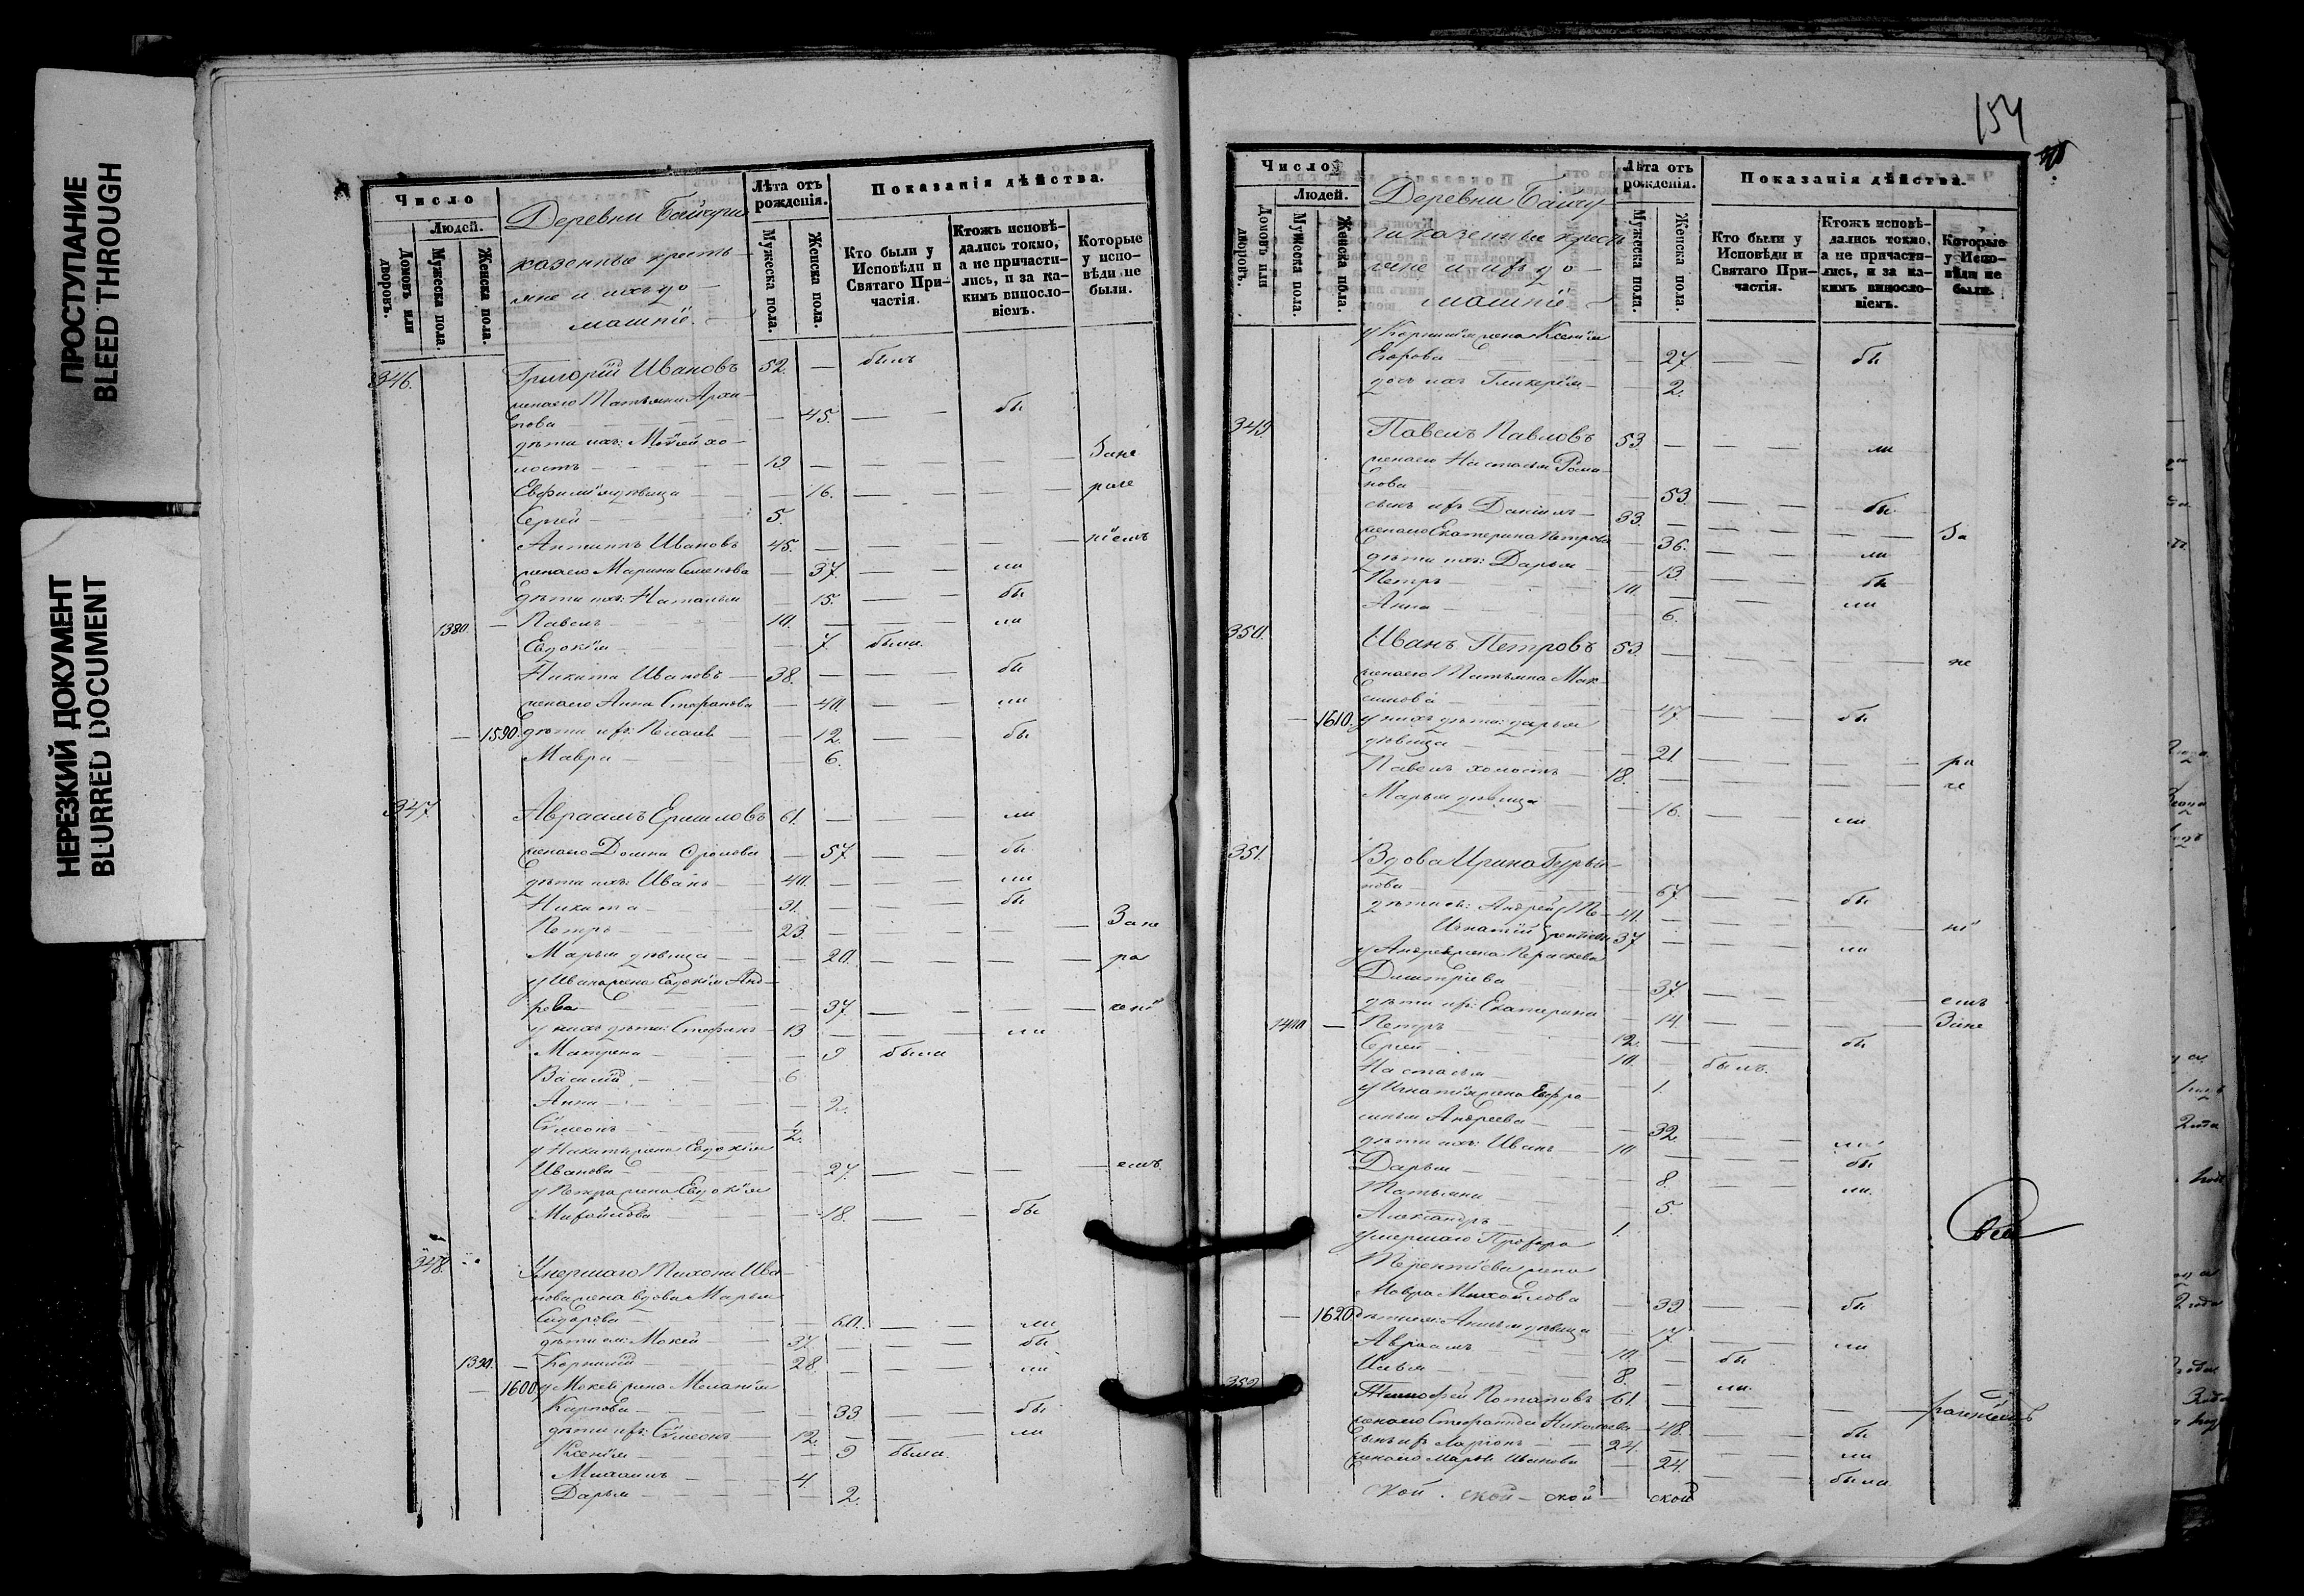 ПРОСТУПАНИЕ
BLEED THROUGH
НЕРЕЗКИЙ ДОКУМЕНТ
BLURRED DOCUMENT
Число
Людей.
Домовъ или дворовъ.
Мужеска пола.
Женска пола.
Деревни
казенные кресть-
яне и ихъ до-
машніе.
Лѣта отъ рожденія.
Мужеска пола.
Женска пола.
Показанія дѣйства.
Кто были у Исповѣди и Святаго При-частія.
Ктожъ исповѣ-дались токмо, а не причасти-лись, и за ка-кимъ виносло-віемъ.
Которые у испо-вѣди не были.
346. Григорій Ивановъ 52. — былъ
жена его Татьяна Архи-
пова — 45. — — бы
дѣти ихъ: Мойсей хо-
лостъ 19 — — — — Зане
Евфимія дѣвица — 16. — — — раче
Сергей 5.
Антипъ Ивановъ 45. — — — — ніемъ
жена его Марина Семенова — 37. — — ли
дѣти ихъ: Наталья — 15. — — бы
1380. — Павелъ 10. — — — ли
Евдокія — 7. была
Никита Ивановъ 38. — — — бы
жена его Анна Стефанова — 40. — — ли
— 1590. дѣти ихъ: — 12. — — бы
Мавра — 6.
347. Авраамъ 61. — — — ли
жена его Домна — 57. — — бы
дѣти ихъ: Иванъ 40. — — — ли
Никита 31. — — — бы
Петръ 23. — — — — Зане
Марья дѣвица — 20. — — — ра
у Ивана жена Евдокія Анд-
реева — 37. — — —
у нихъ дѣти: Стефанъ 13 — — — ли
Матрена — 9 была
Василій 6
Анна — 2.
Сѵмеонъ ½
у Никиты жена Евдокія
Иванова — 27. — — — емъ.
у Петра жена Евдокія
Михайлова — 18. — — бы
348. Умершаго Тихона Ива-
нова жена вдова Марья
Сидорова — 60. — — ли
дѣти ея: Мокей 37 — — — бы
1390. — Корнилій 28 — — — ли
— 1600. у Мокея жена Меланія
Карпова — 33 — — бы
дѣти ихъ: Сѵмеонъ 12. — — — ли
Ксенія — 9 была.
Михаилъ 4.
Дарья — 2.
154
Число
Людей.
Домовъ или дворовъ.
Мужеска пола.
Женска пола.
Деревни
казенные кресть-
яне и ихъ до-
машніе
Лѣта отъ рожденія.
Мужеска пола.
Женска пола.
Показанія дѣйства.
Кто были у Исповѣди и Святаго При-частія.
Ктожъ исповѣ-дались токмо, а не причасти-лись, и за ка-кимъ виносло-віемъ.
Которые у Испо-вѣди не были.
у Корнилія жена Ксенія
Егорова — 27. — — бы
дочь ихъ Гликерія — 2.
349. Павелъ Павловъ 53 — — — ли
жена его Настасья Рома-
нова — 53. — —
сынъ ихъ Даніилъ 33. — — — бы.
жена его Екатерина Петрова — 36. — — — За
дѣти ихъ: Дарья — 13. — — ли
Петръ 10. — — — бы
Анна — 6. ли
350. Иванъ Петровъ 53. — — — — не
жена его Татьяна Мак-
симова — 47. — — бы
— 1610. у нихъ дѣти: Дарья
дѣвица — 21 — — — ра
Павелъ холостъ 18. — — — — че
Марья дѣвица — 16. — — ли
351. Вдова Ирина Гурья-
нова — 67. — — бы
дѣти ея: Андрей Те- 41. — — — — ні
Игнатій рентіевы 37 — — — ли
у Андрея жена Параскева
Димитріева — 37. — — — емъ
дѣти ихъ: Екатерина — 14. — — — Зане
1400 — Петръ 12. — — — бы
Сергей 10. — былъ.
Настасья — 1.
у Игнатія жена Евфро-
синья Андреева — 32. — — ли
дѣти ихъ: Иванъ 10 — — — бы
Дарья — 8. — — ли.
Татьяна — 5.
Александръ 1.
умершаго Прохора
Терентіева жена
Мавра Михайлова — 39. — — бы
— 1620. дѣти ея: Анна дѣвица — 17. — — ли
Авраамъ 10. — бы
Илья 8. — ли.
352 Тимофей Потаповъ 61. — — — — раченіемъ
жена его Стефанида Николаева — 48. — — бы
сынъ ихъ Ларіонъ 24. — — — ли
жена его Марья Иванова — 24. — — была